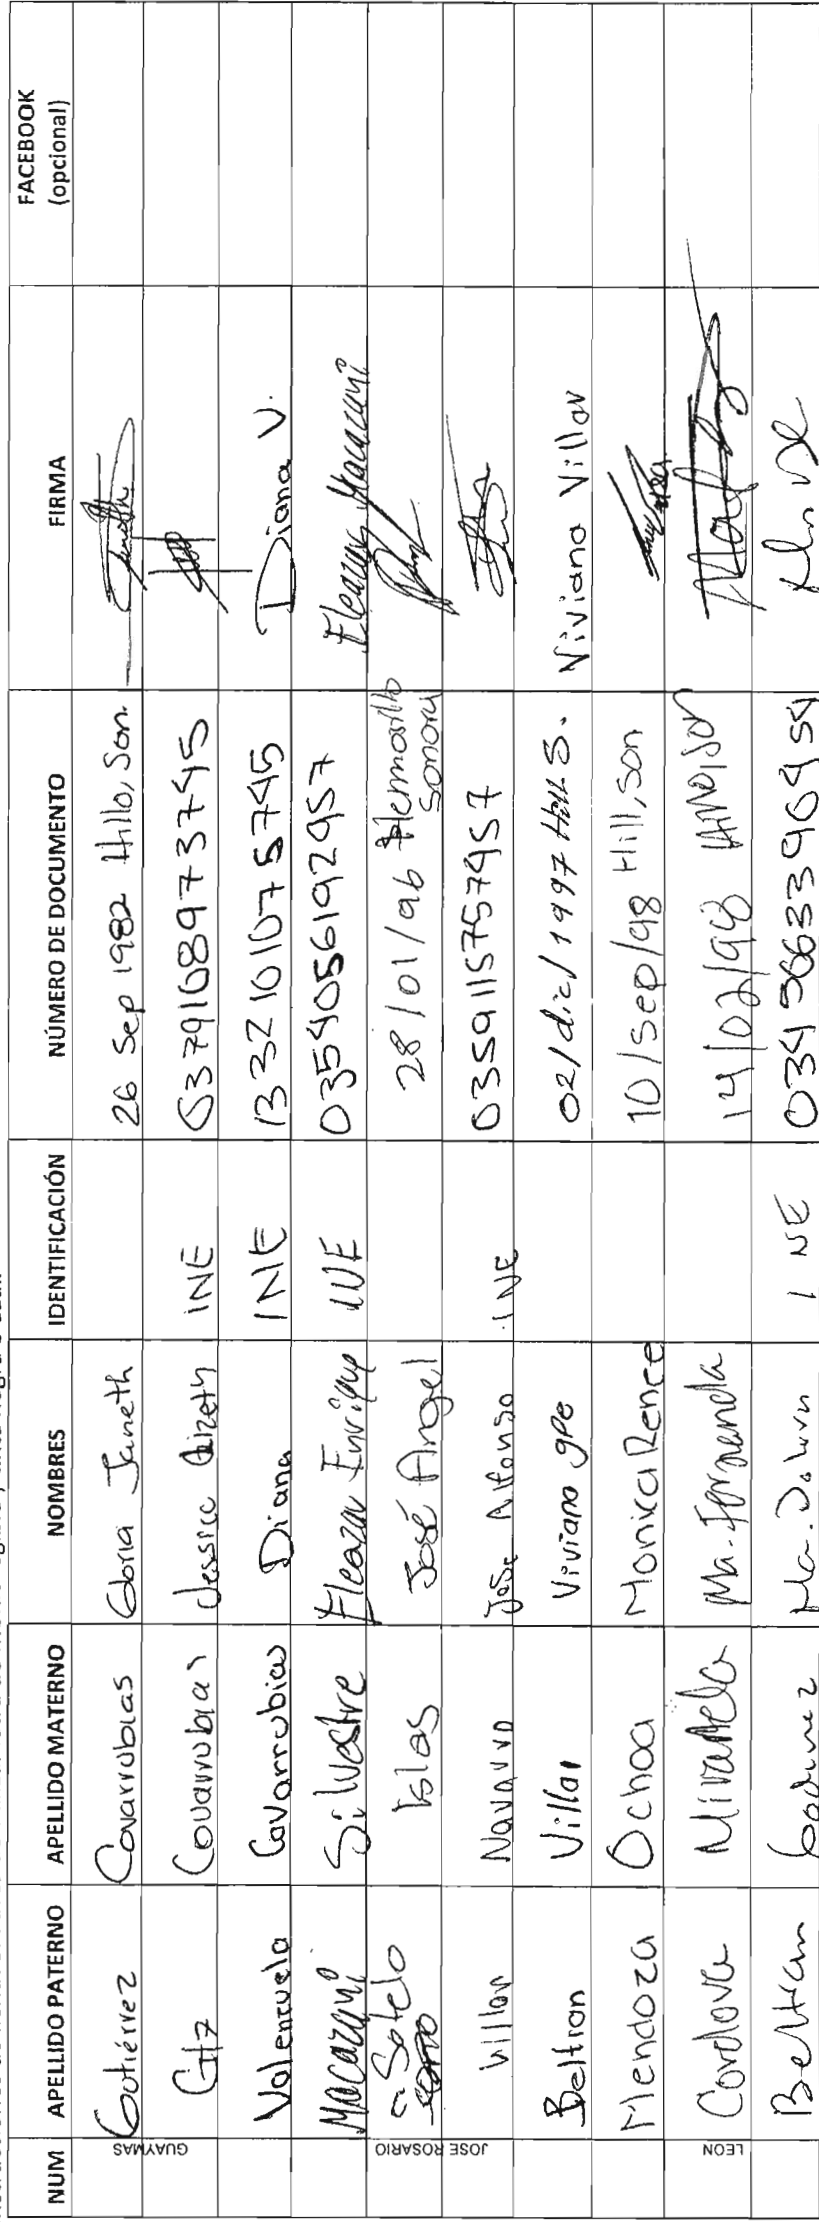 NUM APELLIDO PATERNO APELLIDO MATERNO NOMBRES IDENTIFICACIÓN NÚMERO DE DOCUMENTO FIRMA FACEBOOK (opcional)
GUAYMAS
Gutiérrez Covarrubias Gloria Janeth 26 Sep 1982 Hillo, Son.
Gtz Covarrubias Jessica Lizeth INE 0379108973745
Valenzuela Covarrubias Diana INE 1332101075745 Diana V.
Macazani Silvestre Eleazar Enrique INE 0354056192957 Eleazar Macazani
JOSE ROSARIO
Sotelo Islas José Angel 28/01/96 Hermosillo Sonora
Villar Navarro Jose Alfonso INE 0359115757957
Beltran Villar Viviana gpe 02/dic/1997 Hill S. Viviana Villar
Mendoza Ochoa Monica Renee 10/sep/98 Hill, son
LEON
Cordova Miranda Ma. Fernanda 14/02/98
Beltran Ma. INE